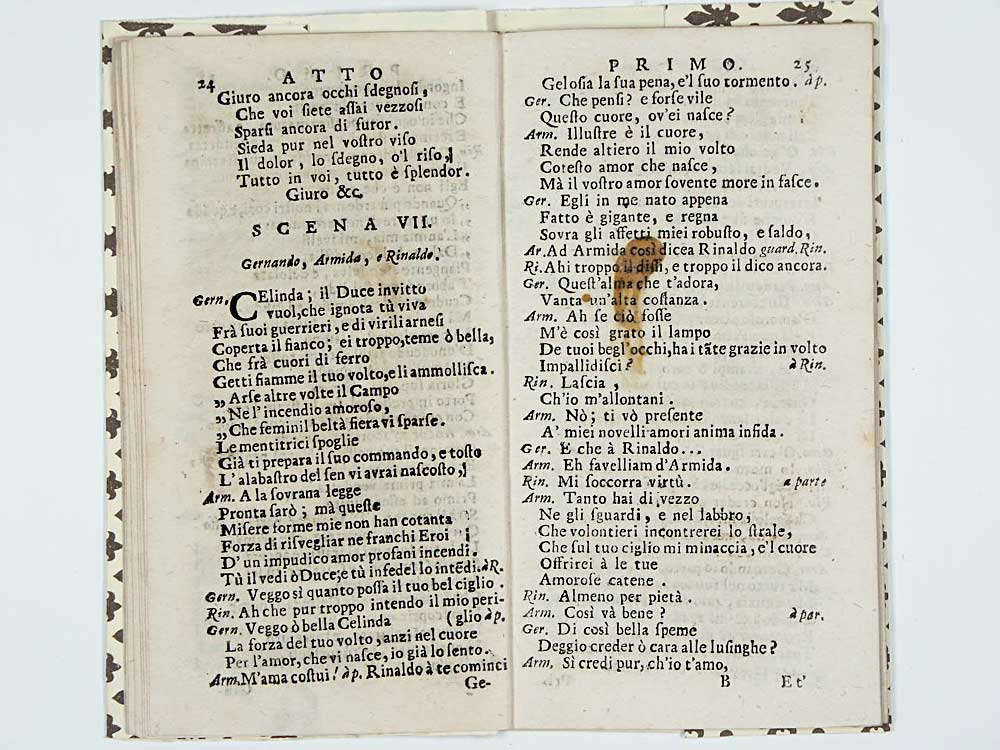 24 ATTO
Giuro ancora occhi ſdegnoſi,
Che voi ſiete aſſai vezzoſi
Sparſi ancora di furor.
Sieda pur nel voſtro viſo
Il dolor, lo ſdegno, o'l riſo,
Tutto in voi, tutto è ſplendor.
Giuro &c.
SCENA VII.
Gernando, Armida, e Rinaldo.
Gern. CElinda; il Duce invitto
vuol, che ignota tù viva
Frà ſuoi guerrieri, e di virili arneſi
Coperta il fianco; ei troppo, teme ò bella,
Che frà cuori di ferro
Getti fiamme il tuo volto, e li ammolliſca.
„ Arſe altre volte il Campo
„ Ne l'incendio amoroſo,
„ Che feminil beltà fiera vi ſparſe.
Le mentitrici ſpoglie
Già ti prepara il ſuo commando, e toſto
L'alabaſtro del ſen vi avrai naſcoſto,
Arm. A la ſovrana legge
Pronta ſarò; mà queſte
Miſere forme mie non han cotanta
Forza di riſvegliar ne franchi Eroi
D'un impudico amor profani incendi.
Tù il vedi ò Duce; e tù infedel lo intēdi. à R.
Gern. Veggo sì quanto poſſa il tuo bel ciglio.
Rin. Ah che pur troppo intendo il mio peri-
Gern. Veggo ò bella Celinda (glio à p.
La forza del tuo volto, anzi nel cuore
Per l'amor, che vi naſce, io già lo ſento.
Arm. M'ama coſtui! à p. Rinaldo à te cominci
Ge-
PRIMO. 25
Geloſia la ſua pena, e'l ſuo tormento. à p.
Ger. Che penſi? e forſe vile
Queſto cuore, ov'ei naſce?
Arm. Illuſtre è il cuore,
Rende altiero il mio volto
Coteſto amor che naſce,
Mà il voſtro amor ſovente more in faſce.
Ger. Egli in me nato appena
Fatto è gigante, e regna
Sovra gli affetti miei robuſto, e ſaldo,
Ar. Ad Armida così dicea Rinaldo guard. Rin.
Ri. Ahi troppo il diſſi, e troppo il dico ancora.
Ger. Queſt'alma che t'adora,
Vanta un'alta coſtanza.
Arm. Ah ſe ciò foſſe
M'è così grato il lampo
De tuoi begl'occhi, hai tāte grazie in volto
Impallidiſci? à Rin.
Rin. Laſcia,
Ch'io m'allontani.
Arm. Nò; ti vò preſente
A' miei novelli amori anima infida.
Ger. E che à Rinaldo...
Arm. Eh favelliam d'Armida.
Rin. Mi ſoccorra virtù. a parte
Arm. Tanto hai di vezzo
Ne gli ſguardi, e nel labbro,
Che volontieri incontrerei lo ſtrale,
Che ſul tuo ciglio mi minaccia, e'l cuore
Offrirei à le tue
Amoroſe catene.
Rin. Almeno per pietà.
Arm. Così và bene? à par.
Ger. Di così bella ſpeme
Deggio creder ò cara alle luſinghe?
Arm. Sì credi pur, ch'io t'amo,
B Et'